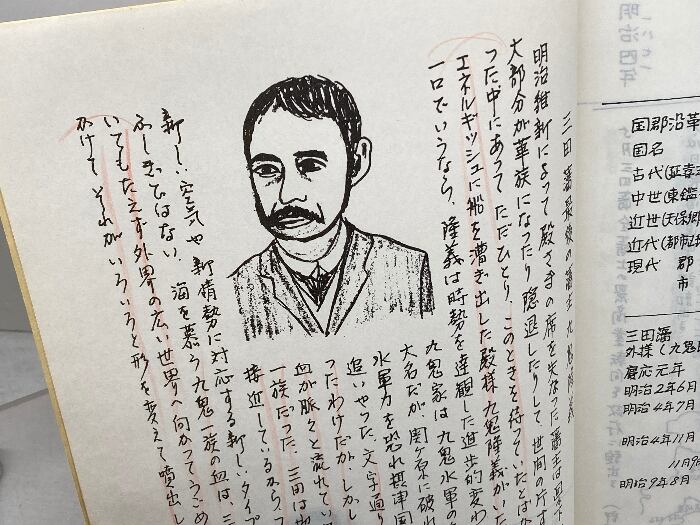 三田藩最後の藩主 九鬼隆義
明治維新によって殿さまの席を失った藩主は
大部分が華族になったり 隠退したりして 世間の片す
った中にあって ただひとり、このときを待っていたとば
エネルギッシュに船を漕き出した殿様 九鬼隆義がい
一口でいうなら、隆義は時勢を達観した進歩的変わ
九鬼家は 九鬼水軍の
大名だが、関ヶ原に破れ
水軍力を恐れ摂津国
追いやった。文字通り
ったわけだが しかし
血が脈々と流れてい
一族だった。三田は
接近しているから
新しい空気や 新情勢に対応する新しいタイプ
ふしぎではない。海を慕う九鬼一族の血は、三
いてもたえず外界の広い世界へ向かってうごめ
かけて それがいろいろと形を変えて噴出し
明治四年
国郡沿革
国名
古代(延喜
中世(東鑑
近世(天保郷
近代(都
現代 郡
市
三田藩
外様(九鬼
慶応元年
明治2年6月
明治4年7月
明治4年11月
11月
明治9年8月